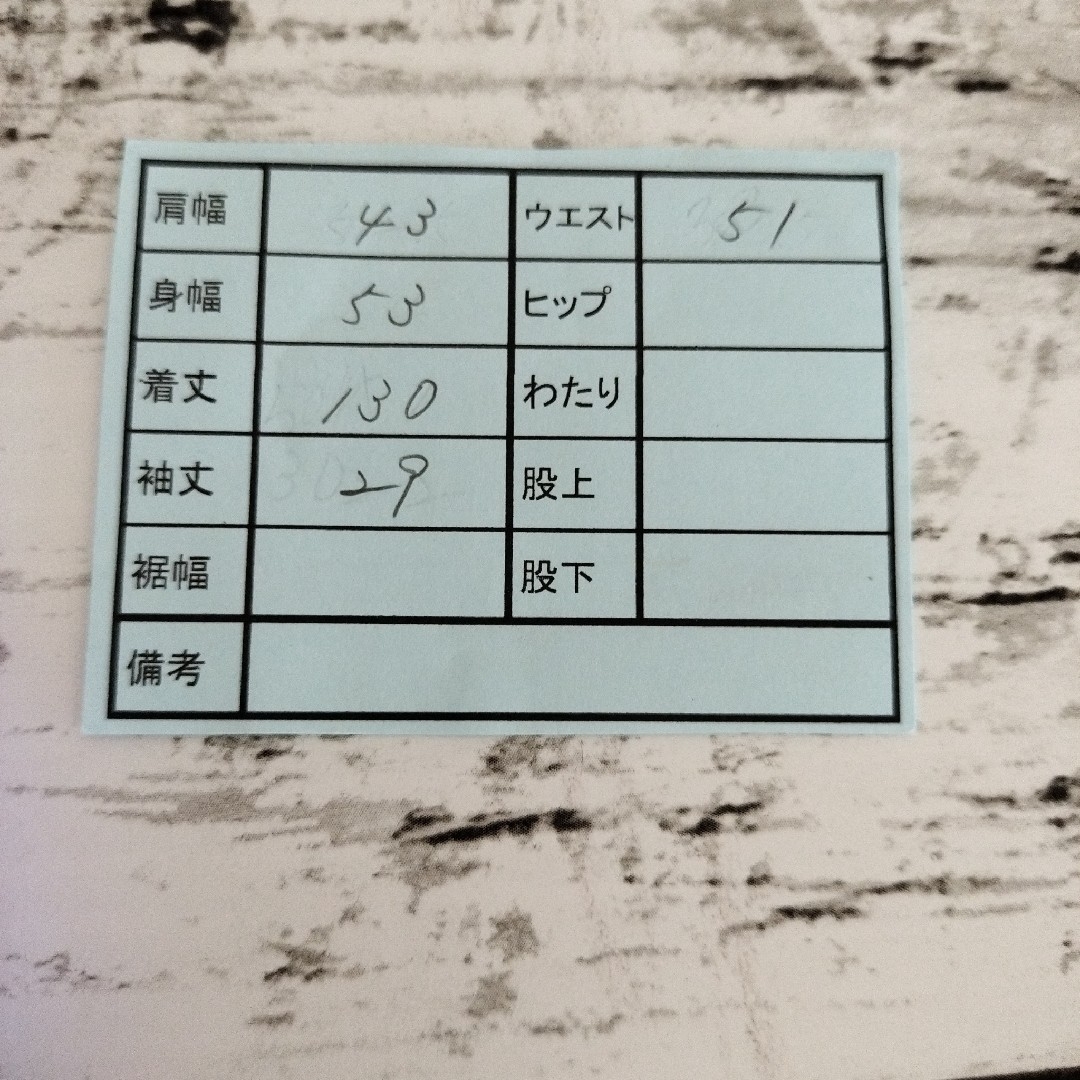 肩幅 43 ウエスト 51
身幅 53 ヒップ
着丈 130 わたり
袖丈 29 股上
裾幅 股下
備考